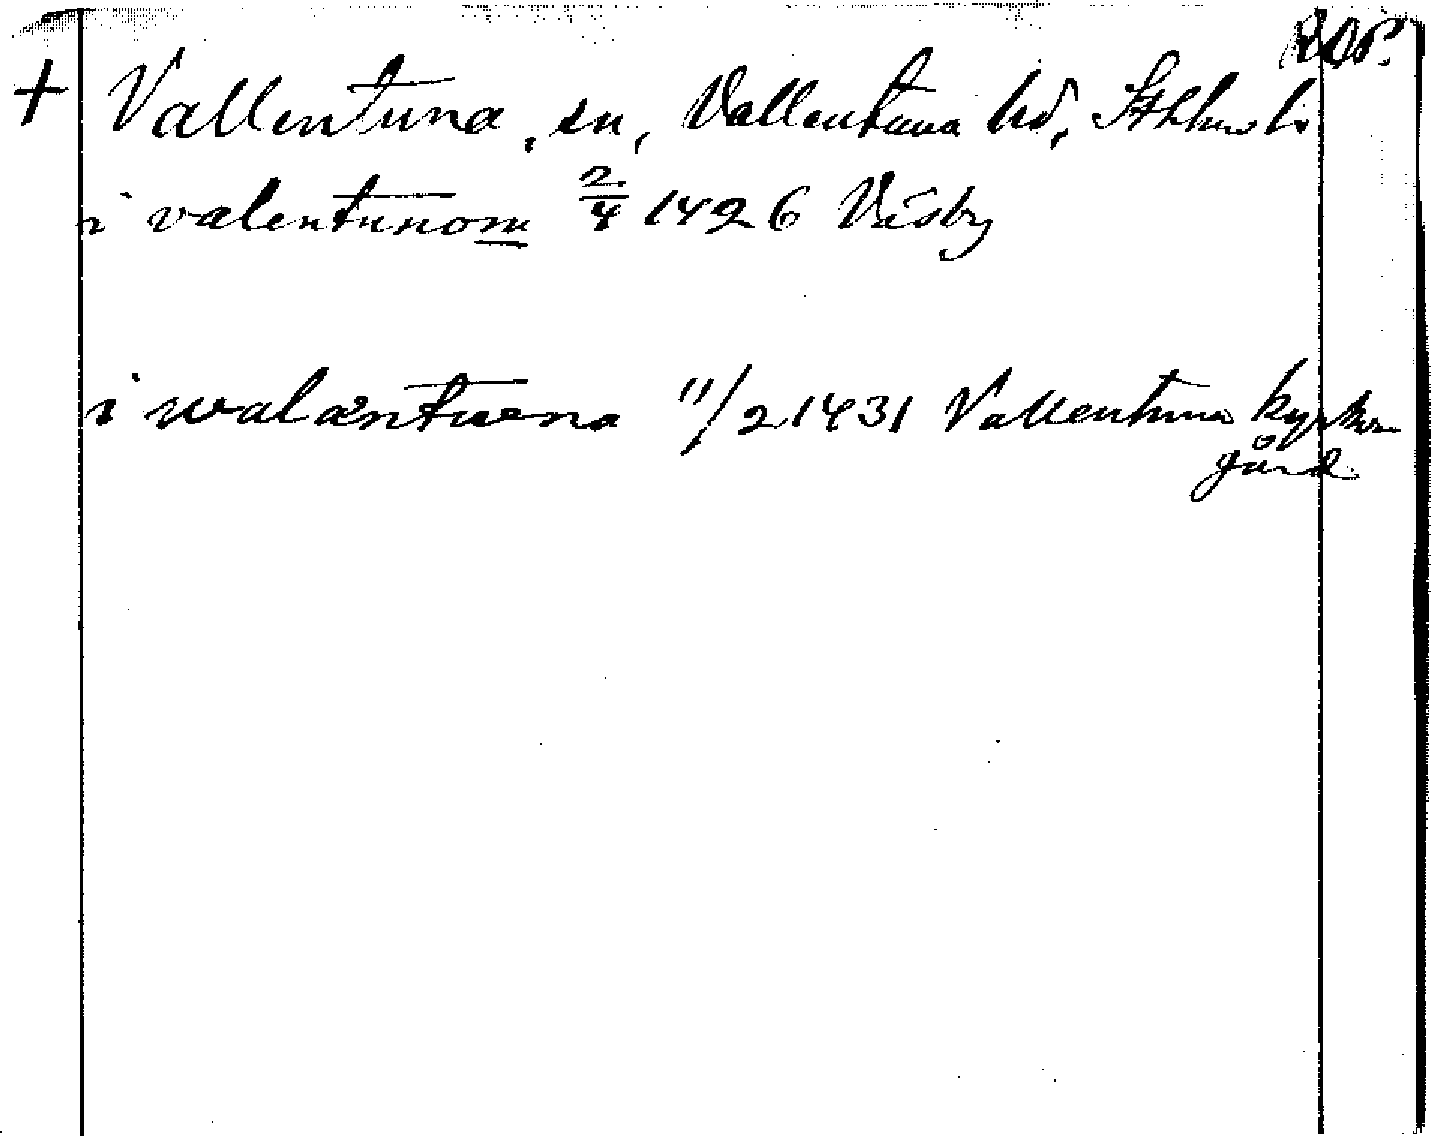 RAp.
+ Vallentuna, sn, Vallentuna hd, Sthlms l.
i valentunom 2/4 1426 Väsby
i walæntuna 11/2 1431 Vallentuna kyrko
gård